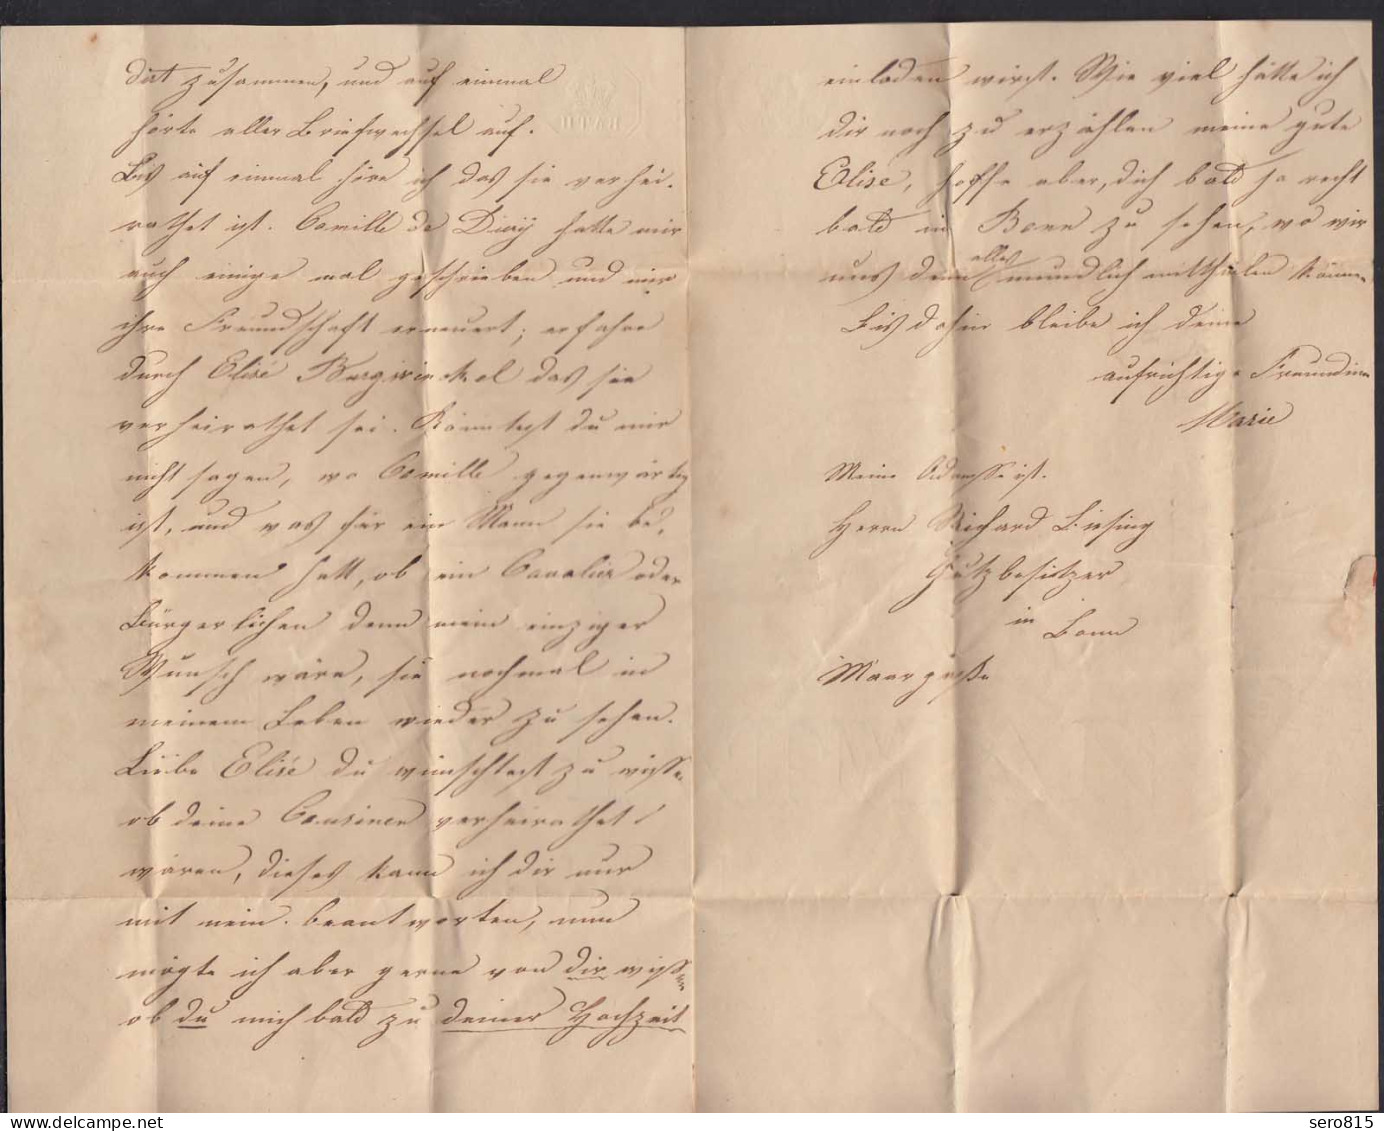 dirt zusammen, und auf einmal
hörte aller Briefwechsel auf.
Bis auf einmal höre ich das sie verhei-
rathet ist. Camille de hatte mir
auch einige mal geschrieben und mir
ihre Freundschaft erneuert; erfahre
durch Elise Burgwinckel das sie
verheirathet sei. Könntest du mir
nicht sagen, wo Camille gegenwärtig
ist, und was für ein Mann sie be-
kommen hatt, ob ein Cavalier oder
Bürgerlichen denn mein einziger
Wunsch wäre, sie nochmal in
meinem Leben wieder zu sehen.
Liebe Elise du wünschtest zu wissen
ob deine Cousinen verheirathet
wären, dieses kann ich dir nur
mit nein beantworten, nun
mögte ich aber gerne von dir wissen
ob du mich bald zu deiner Hochzeit
einladen wirst. Wie viel hätte ich
dir noch zu erzählen meine gute
Elise, hoffe aber, dich bald so recht
bald in Bonn zu sehen, wo wir
uns dann alles mündlich mittheilen können
Bis dahin bleibe ich deine
aufrichtige Freundinn
Marie
Meine Adresse ist.
Herrn Richard Biesing
Gutzbesitzer
in Bonn
Maargasse
BATH
sero815